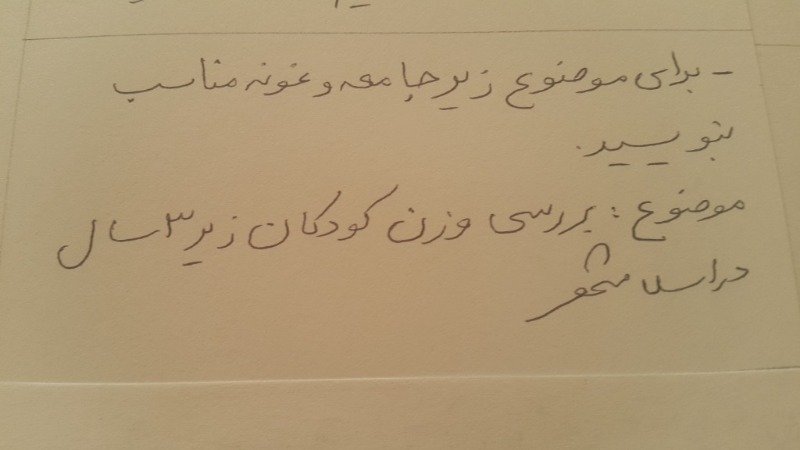 - برای موضوع زیر جامعه و نمونه مناسب
بنویسید.
موضوع: بررسی وزن کودکان زیر ۳ سال
در اسلامشهر